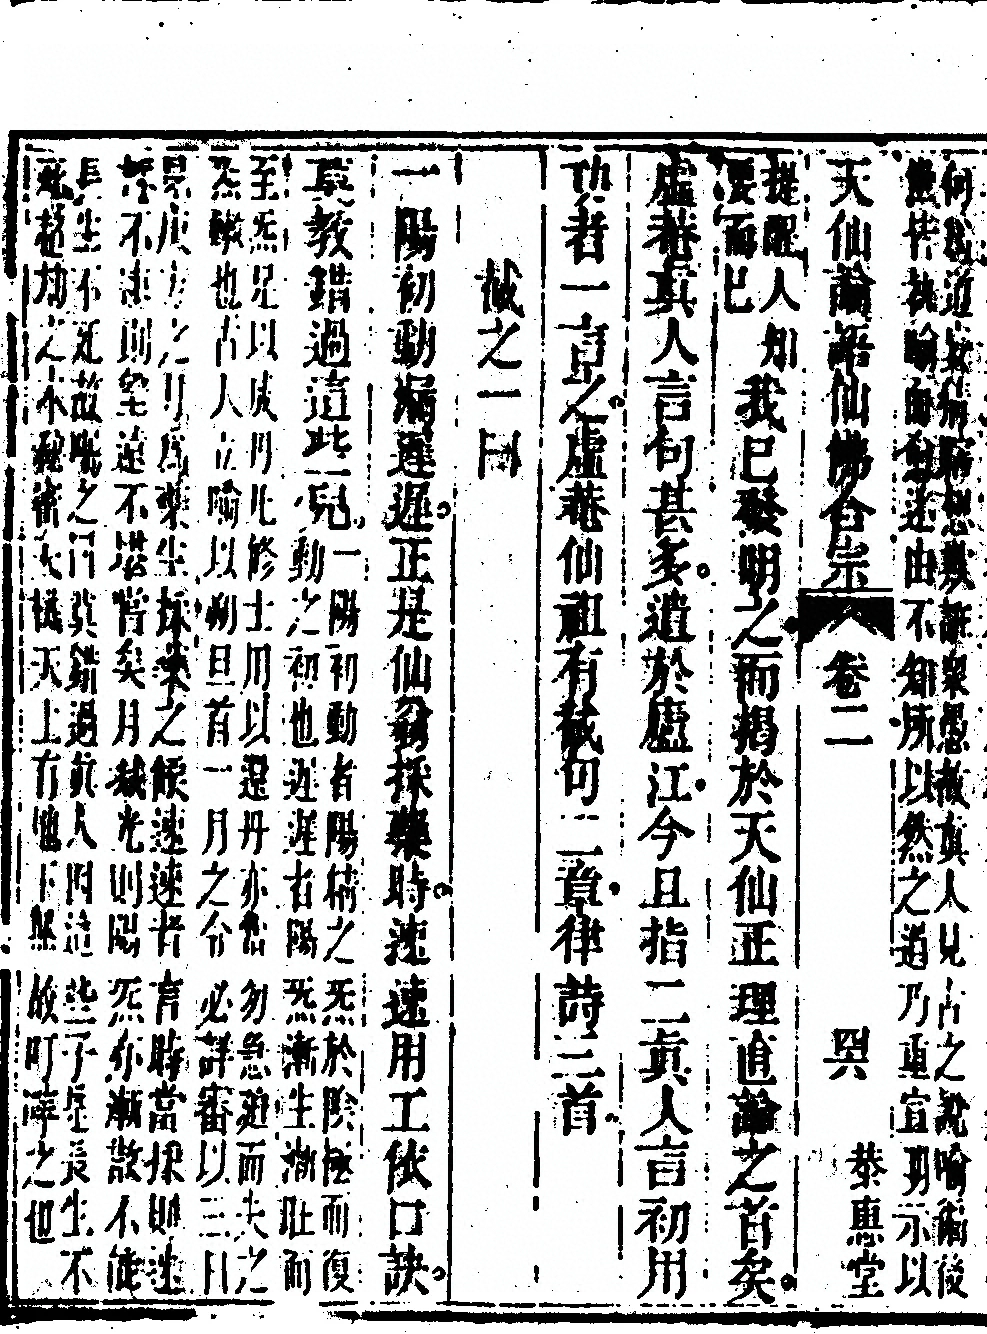 道真人見古之說喻後
皆執喻而迷由不知所以然之道乃重宣明示以
天仙論語仙佛合宗 卷二 恭惠堂
提醒人知
要而已
我已發明之而揭於天仙正理直論之首矣
虛菴真人言句甚多遺於廬江今且指二真人言初用
功者一言之虛菴仙祖有截句二章律詩三首
截之一曰
一陽初動漏遲遲正是仙翁採藥時速速用工依口訣
莫教錯過這些兒
一陽初動者陽精之炁於陰極而復
動之初也遲遲者陽炁漸生漸壯而
至炁足以成丹比修士用以還丹亦當勿急迫而失之
也古人立喻以朔旦首一月之令必詳審以三日
見庚方之月爲藥生採藥之候速速者育時當採則速
若不速則望遠不堪嘗矣月缺光則陽炁亦漸散不能
長生不死故戒之曰莫錯過真人因這些子是長生不
死超劫之本機天上有地下無故叮嚀之也